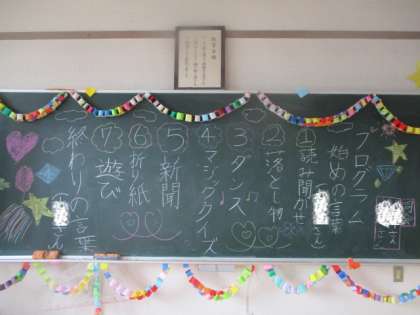 プログラム
始めの言葉
さん
①読み聞かせ
さん
②落とし物
③ダンス
④マジッククイズ
⑤新聞
⑥折り紙
⑦遊び
終わりの言葉
さん